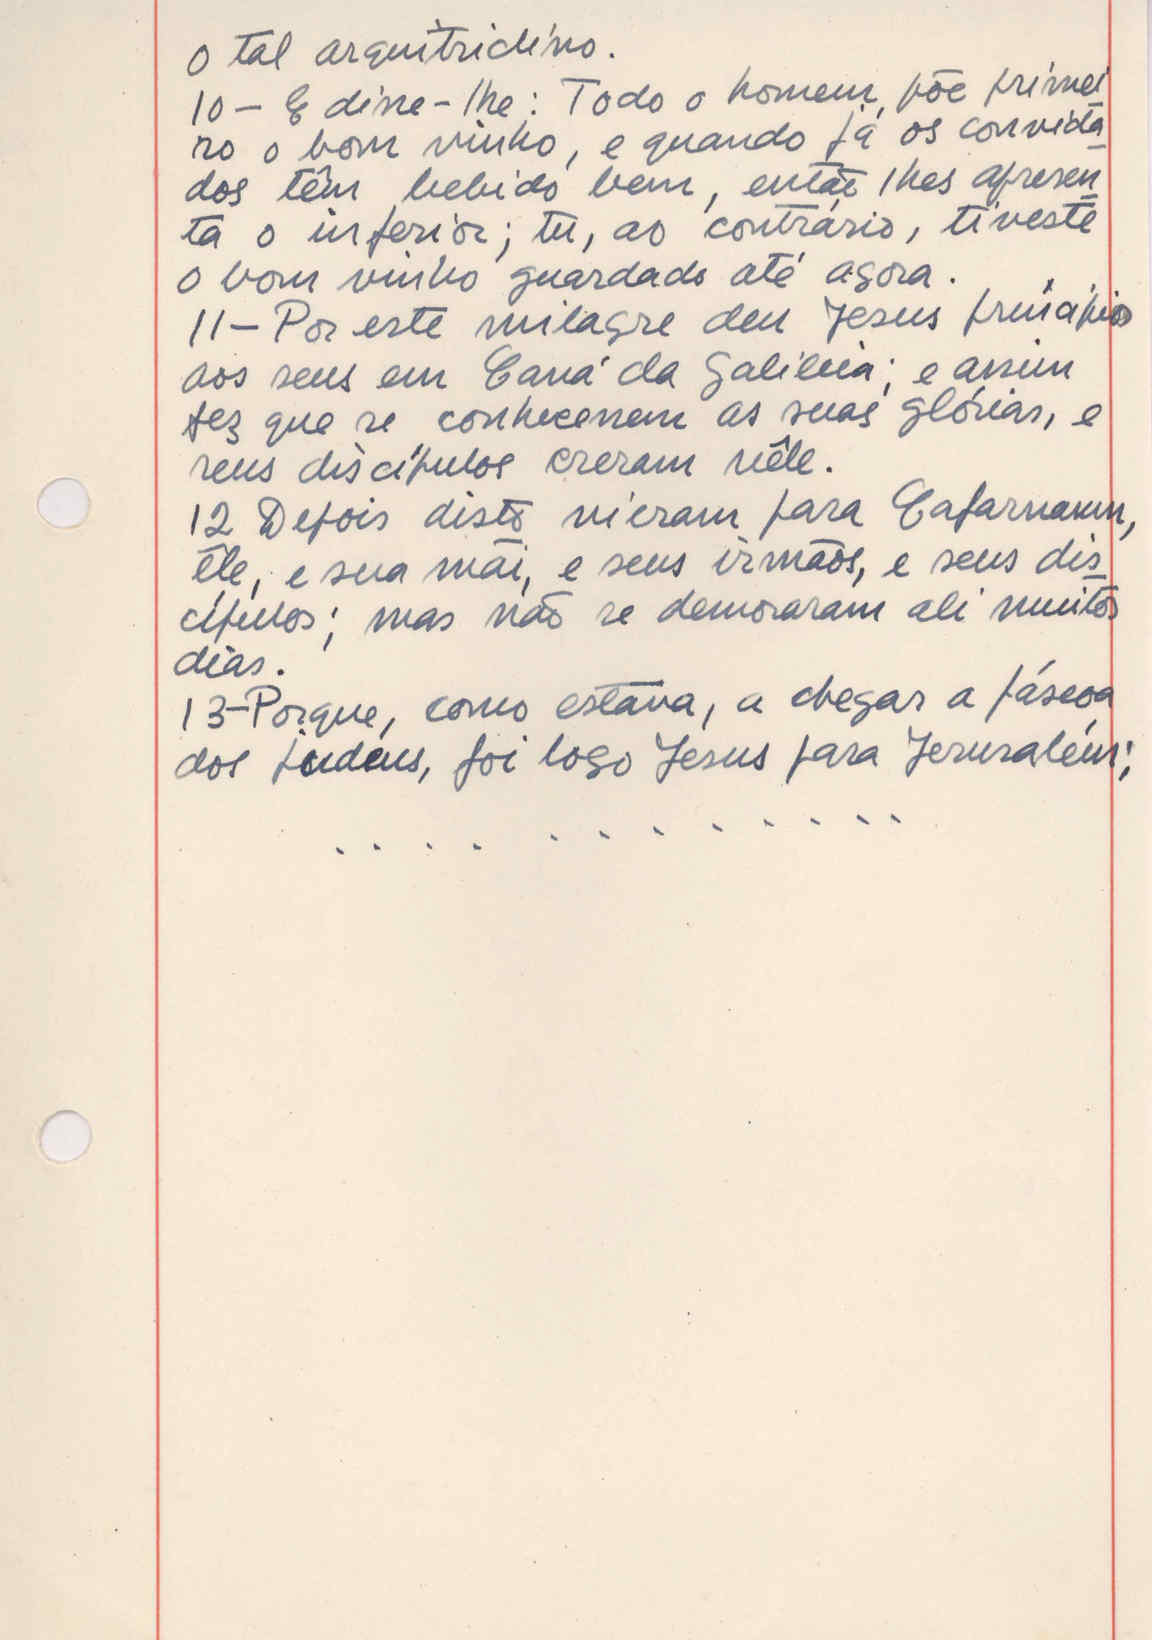 o tal arquitriclino.
10 - E disse-lhe: Todo o homem, põe primei
ro o bom vinho, e quando já os convida
dos têm bebido bem, então lhes apresen
ta o inferior; tu, ao contrário, tiveste
o bom vinho guardado até agora.
11 - Por este milagre deu Jesus princípio
aos seus em Caná da Galileia; e assim
fez que se conhecessem as suas glórias, e
seus discípulos creram nêle.
12 Depois disto vieram para Cafarnaum,
êle, e sua mãi, e seus irmãos, e seus dis
cípulos; mas não se demoraram ali muitos
dias.
13-Porque, como estava, a chegar a páscoa
dos judeus, foi logo Jesus para Jerusalém;
. . . . . . . . . . . .